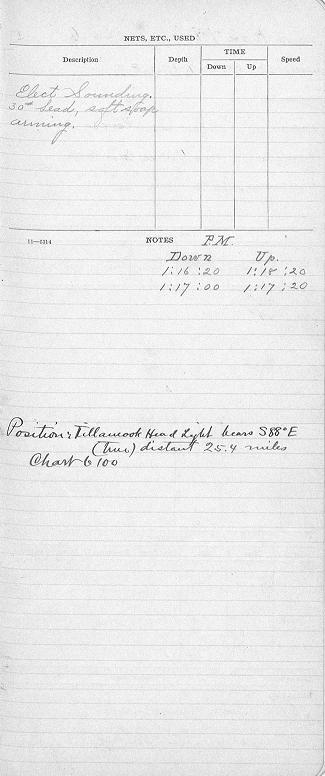 NETS, ETC., USED
Description Depth TIME Speed
Down Up
Elect Sounding.
30# lead, soft soap
arming.
11—5314 NOTES P.M.
Down Up.
1:16:20 1:18:20
1:17:00 1:17:20
Position: Tillamook Head Light bears S88°E
(true) distant 25.4 miles
Chart 6100